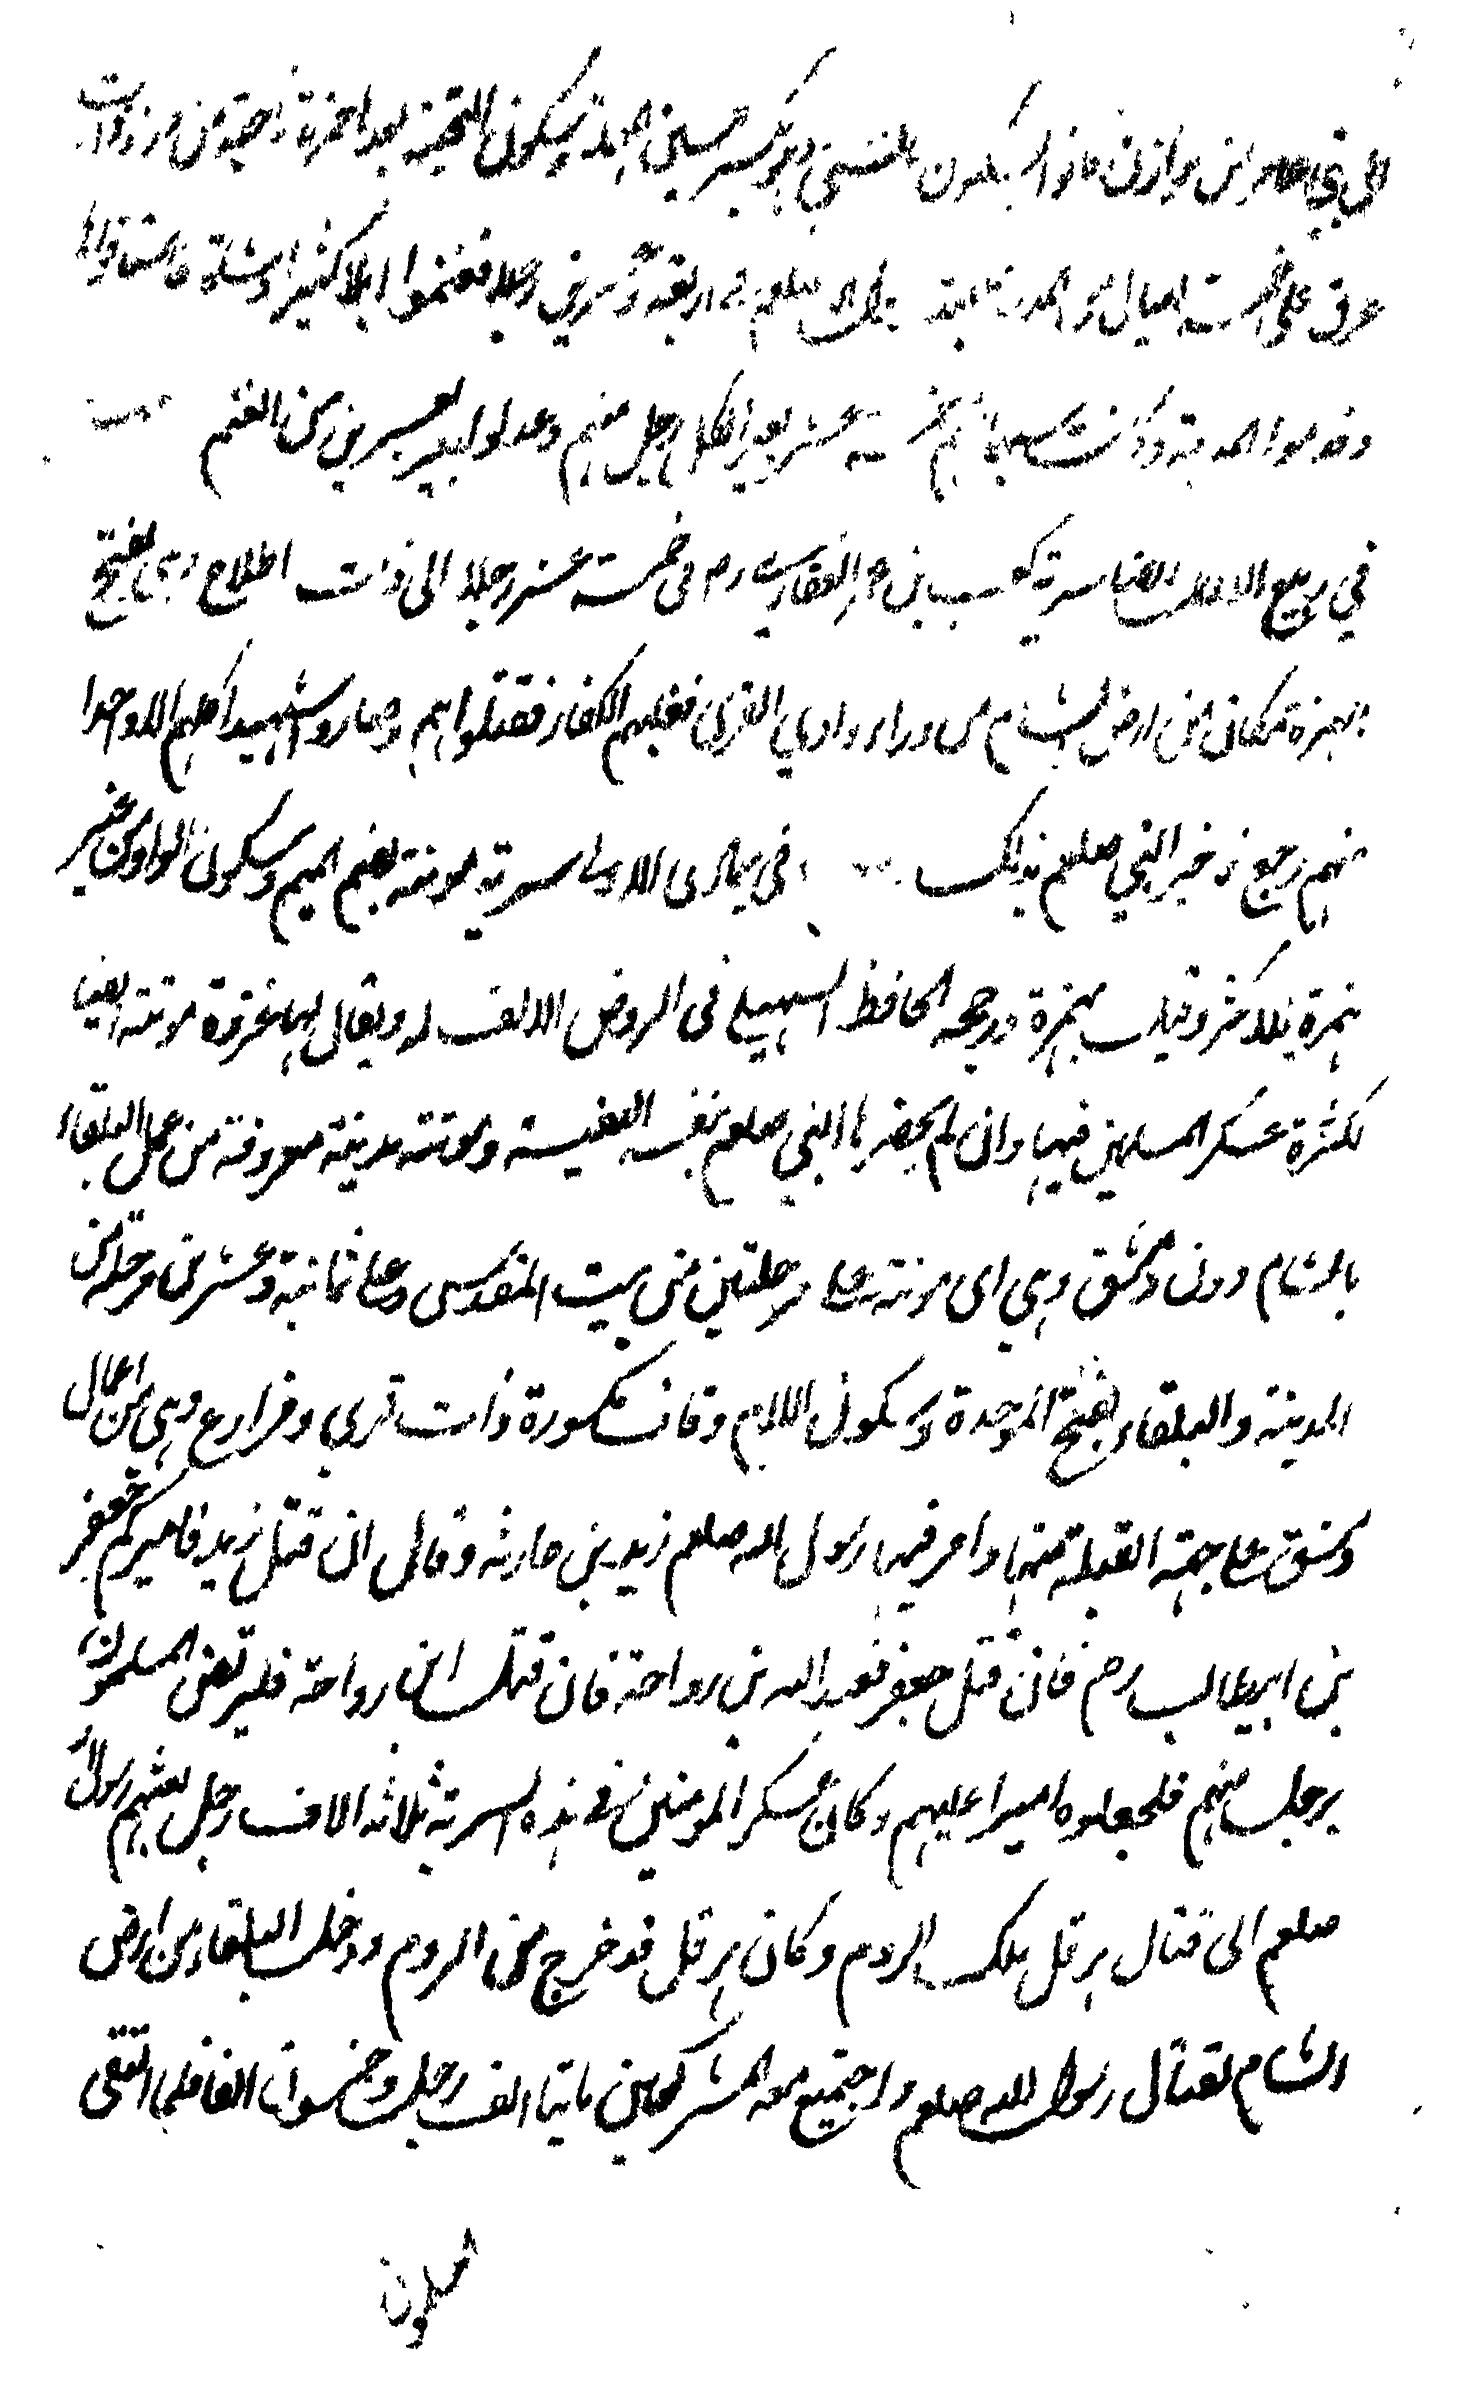 الى بني عامر ابن هوازن كانوا يسكنون بالسي بكسر السين المهملة وسكون التحتية بعد اخره ناحية من وراء ذات
عرق على خمسة اميال من المدينة بعثه صلعم في اربعة وعشرين رجلا فغنموا ابلا كثيرا وشاة فاستاقوا
وقدموا المدينة وكانت سهمانهم خمسة عشر بعيرا لكل رجل منهم وعدلوا البعير بعشرين من الغنم
في ربيع الاول ايضا سرية كعب بن عمير الغفاري رض في خمسة عشر رجلا الى ذات اطلاح وهي بفتح
الهمزة مكان من ارض الشام من وراء وادي القرى فغلبهم الكفار فقتلواهم وصاروا شهيدا كلهم الا واحدا
منهم رجع فاخبر النبي صلعم بذلك في جمادى الاولى سرية موتة بضم الميم وسكون الواو من غير
همزة للاكثر وقيل بهمزة ورجحه الحافظ السهيلي في الروض الانف له ويقال لها غزوة موتة ايضا
لكثرة عسكر المسلمين فيها وان لم يحضرها النبي صلعم بنفسه النفيسة وموتة مدينة معروفة من عمل البلقاء
بالشام دون دمشق وهي اى موتة على مرحلتين من بيت المقدس وعلى ثمانية وعشرين مرحلة من
المدينة والبلقاء بفتح الموحدة وسكون اللام وقاف مكسورة ذات قرى ومزارع وهي من اعمال
دمشق على جهة القبلة منها وامر فيها رسول الله صلعم زيد بن حارثة وقال ان قتل زيد فاميركم جعفر
بن ابيطالب رض فان قتل جعفر فعبد الله بن رواحة فان قتل ابن رواحة فليرتض المسلمون
برجل منهم فليجعلوه اميرا عليهم وكان عسكر المومنين في هذه السرية ثلاثة الاف رجل بعثهم رسول الله
صلعم الى قتال هرقل ملك الروم وكان هرقل قد خرج من الروم ودخل البلقاء من ارض
الشام لقتال رسول الله صلعم واجتمع معه المشركين مايتا الف رجل وخمسون الفا فلما التقى
المسلمون